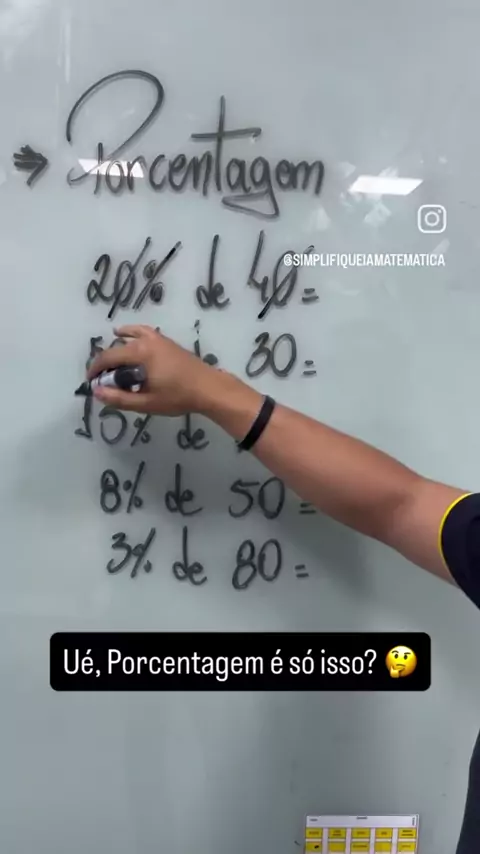 Porcentagem
@SIMPLIFIQUEIAMATEMATICA
20% de 40=
30=
5% de
8% de 50=
3% de 80=
Ué, Porcentagem é só isso? 🤔